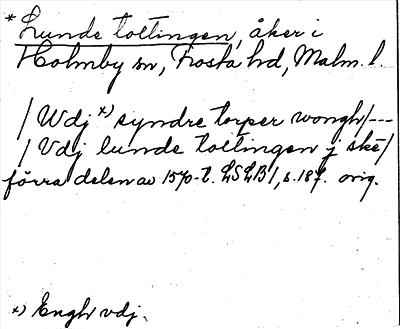 * Lunde toltingen, åker i
Holmby sn, Frosta hd, Malm. l.
/ Wdj x) syndre torper wongh /---
/ Vdj lunde toltingen j skè /
förra delen av 1570-t. LSLB 1, s. 187. orig.
x) Engh vdj.